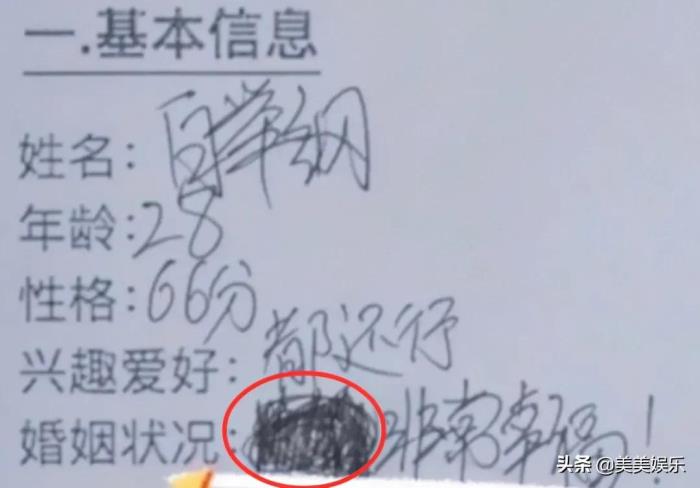 一.基本信息
姓名:白举纲
年龄:28
性格:66分
兴趣爱好:都还行
婚姻状况:非常幸福!
头条 @美美娱乐